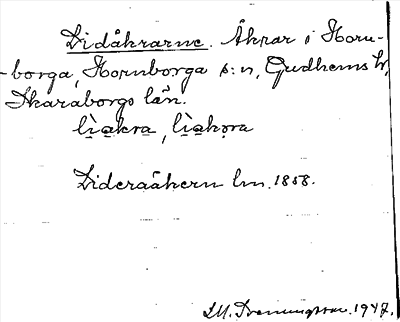 Lidåkrarne. Åkrar i Horn-
borga, Hornborga s:n, Gudhems hd,
Skaraborgs län.
lìa̱kra, lìa̱kọra
Lideraåkern lm. 1858.
1947.